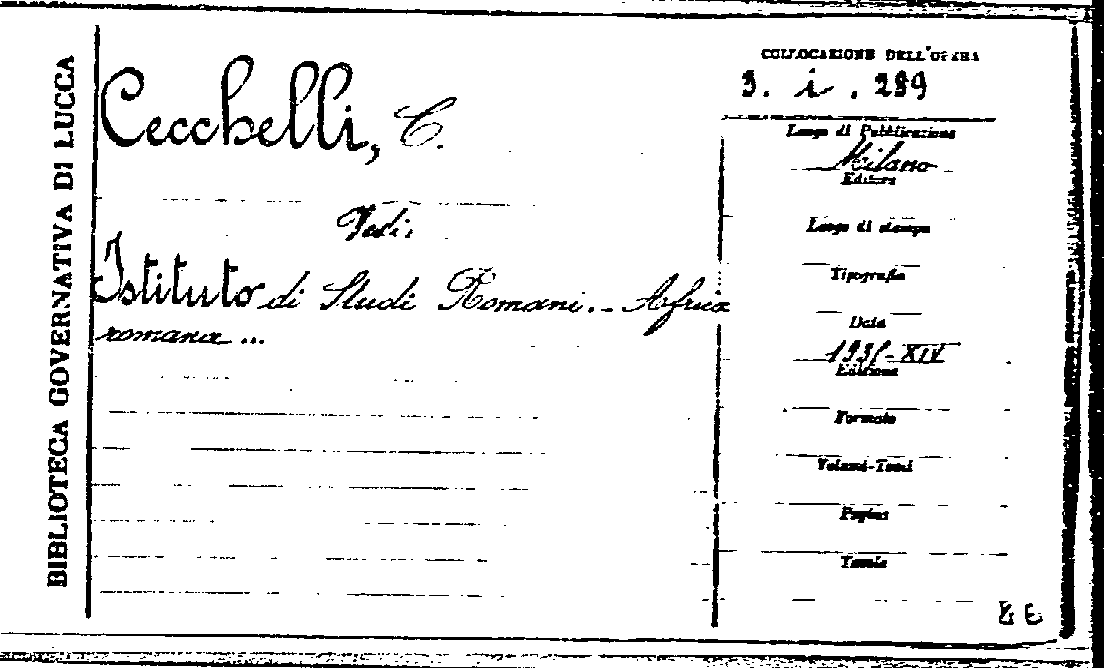 BIBLIOTECA GOVERNATIVA DI LUCCA
Cecchelli, C.
Vedi:
Istituto di Studi Romani. - Africa
romana ...
COLLOCAZIONE DELL'OPERA
3. i. 299
Luogo di Pubblicazione
Milano
Editore
Luogo di stampa
Tipografia
Data
1935-XIV
Edizione
Formato
Volumi-Tomi
Pagine
Tavole